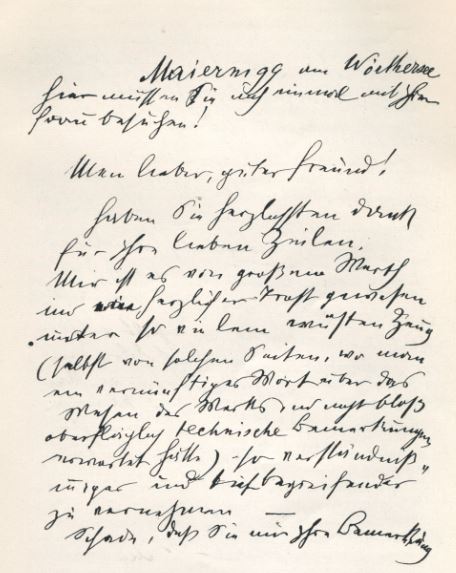 Maiernigg am Wörthersee
hier müssen Sie mich einmal mit Ihrer
Frau besuchen!
Mein lieber, guter Freund!
Haben Sie herzlichsten Dank
für Ihre lieben Zeilen.
Mir ist es von großem Werth
und herzlicher Trost gewesen
unter so vielem wüsten Zeug
(selbst von solchen Seiten, wo man
ein vernünftiges Wort über das
Wesen des Werks und nicht bloß
oberflächlich technische Bemerkungen
erwartet hätte) so verständniß„
inniges und tief begreifendes
zu vernehmen —
Schade, daß Sie mir Ihre Bemerkung